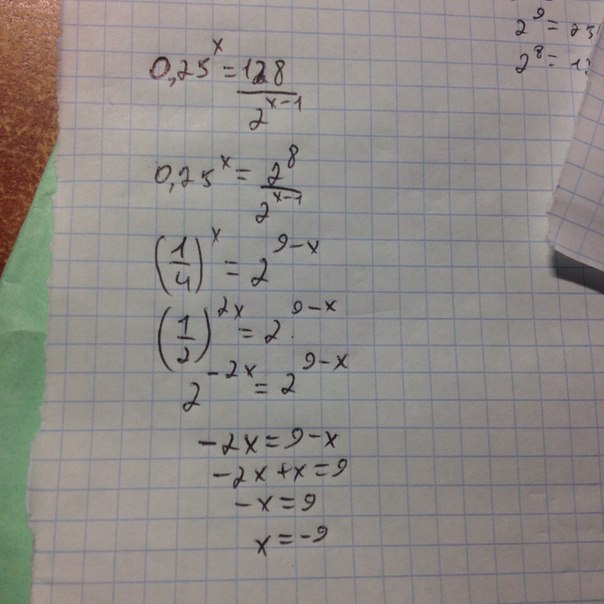 0,25^x = 128 / 2^(x-1)
0,25^x = 2^8 / 2^(x-1)
(1/4)^x = 2^(9-x)
(1/2)^(2x) = 2^(9-x)
2^(-2x) = 2^(9-x)
-2x = 9-x
-2x+x=9
-x=9
x=-9
2^9 =
2^8 =